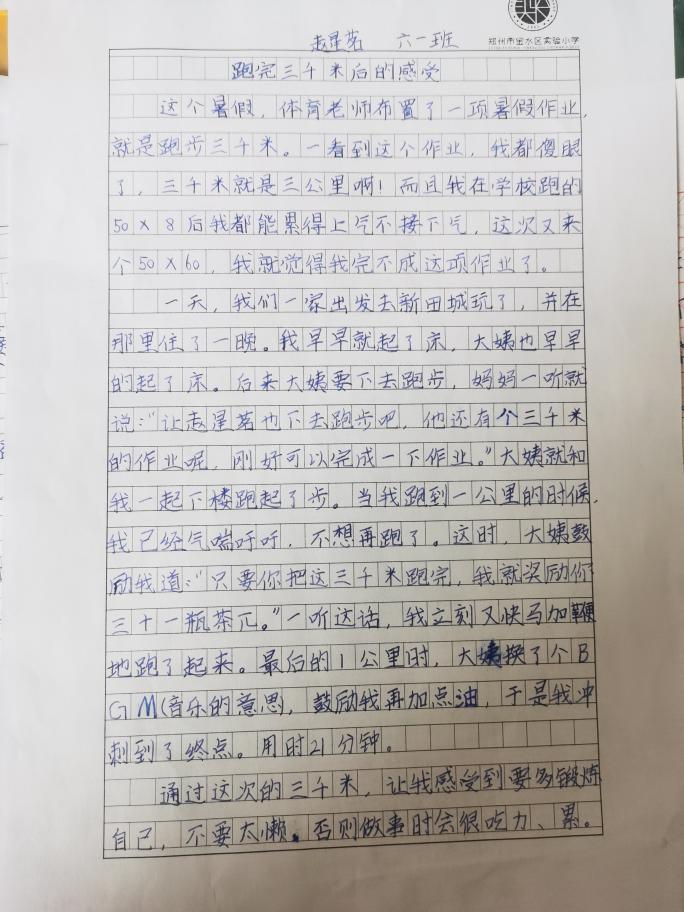 郑州市金水区实验小学
赵星茗 六一班
跑完三千米后的感受
这个暑假，体育老师布置了一项暑假作业，
就是跑步三千米。一看到这个作业，我都傻眼
了，三千米就是三公里啊！而且我在学校跑的
50×8后我都能累得上气不接下气，这次又来
个50×60，我就觉得我完不成这项作业了。
一天，我们一家出发去新田城玩了，并在
那里住了一晚。我早早就起了床，大姨也早早
的起了床。后来大姨要下去跑步，妈妈一听就
说：“让赵星茗也下去跑步吧，他还有个三千米
的作业呢，刚好可以完成一下作业。”大姨就和
我一起下楼跑起了步。当我跑到一公里的时候，
我已经气喘吁吁，不想再跑了。这时，大姨鼓
励我道：“只要你把这三千米跑完，我就奖励你
三十一瓶茶兀。”一听这话，我立刻又快马加鞭
地跑了起来。最后的1公里时，大姨换了个B
GM(音乐的意思)，鼓励我再加点油，于是我冲
刺到了终点。用时21分钟。
通过这次的三千米，让我感受到要多锻炼
自己，不要太懒。否则做事时会很吃力、累。